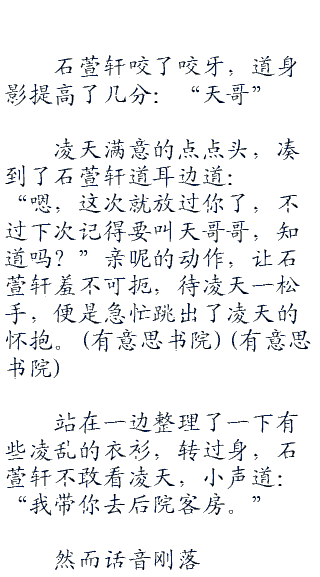 石萱轩咬了咬牙，道身
影提高了几分：“天哥”
凌天满意的点点头，凑
到了石萱轩道耳边道：
“嗯，这次就放过你了，不
过下次记得要叫天哥哥，知
道吗？”亲昵的动作，让石
萱轩羞不可扼，待凌天一松
手，便是急忙跳出了凌天的
怀抱。(有意思书院)(有意思
书院)
站在一边整理了一下有
些凌乱的衣衫，转过身，石
萱轩不敢看凌天，小声道：
“我带你去后院客房。”
然而话音刚落